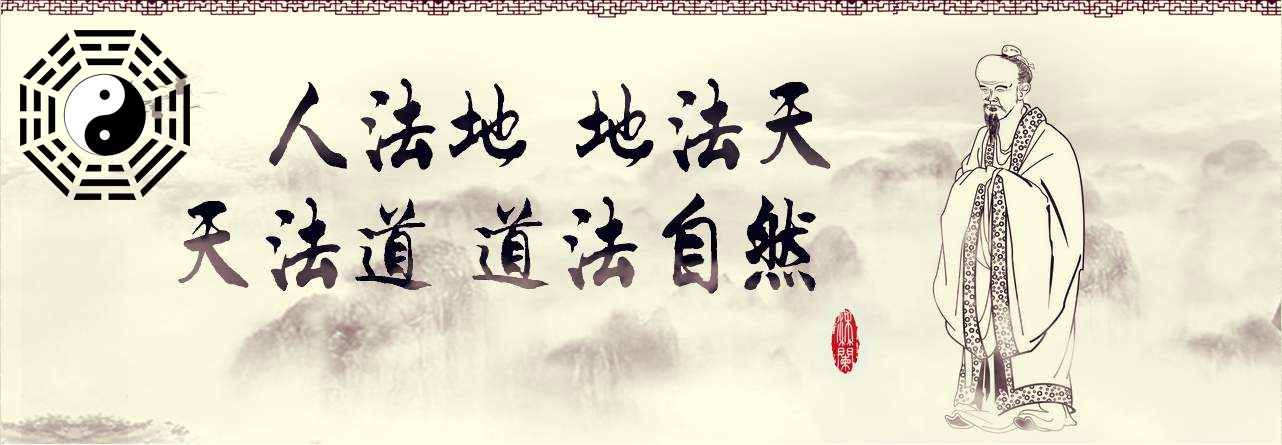 人法地 地法天
天法道 道法自然